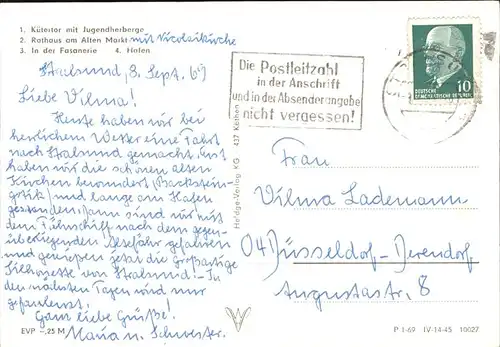 1. Kütertor mit Jugendherberge
2. Rathaus am Alten Markt mit Nicolaikirche
3. In der Fasanerie 4. Hafen
Stralsund, 3. Sept. 69
Liebe Vilma!
Heute haben wir bei
herrlichem Wetter eine Fahrt
nach Stralsund gemacht,
haben wir die schönen alten
Kirchen bewundert (Backstein-
gotik) und lange am Hafen
gestanden, dann sind wir mit
dem Fährschiff nach dem gegen-
überliegenden gefahren
und geniessen jetzt die großartige
Silhouette von Stralsund! - In
den nächsten Tagen wird nur
gefaulenzt.
Ganz liebe Grüße!
Maria u. Schwester.
EVP -,25 M
Heldge-Verlag KG 437 Köthen
Die Postleitzahl
in der Anschrift
und in der Absenderangabe
nicht vergessen!
10
DEUTSCHE
DEMOKRATISCHE REPUBLIK
Frau
Vilma Lademann
04) Düsseldorf-Derendorf
Augustastr. 8
P 1-69 IV-14-45 10027